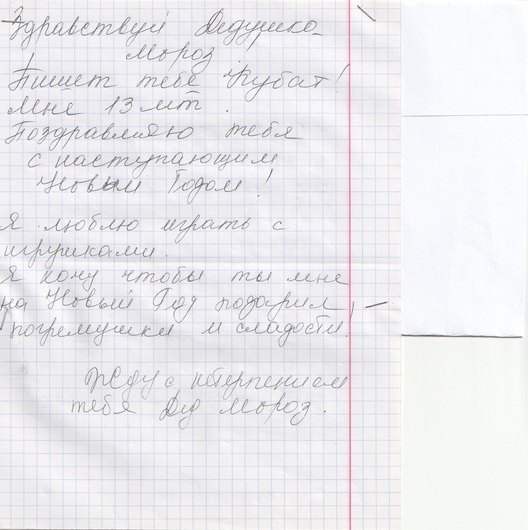 Здравствуй Дедушка
Мороз
Пишет тебе Кубат!
Мне 13 лет.
Поздравляю тебя
с наступающим
Новым Годом!
Я люблю играть с
игрушками.
Я хочу чтобы ты мне
на Новый Год подарил
погремушки и сладости!
Жду с нетерпением
тебя Дед Мороз.